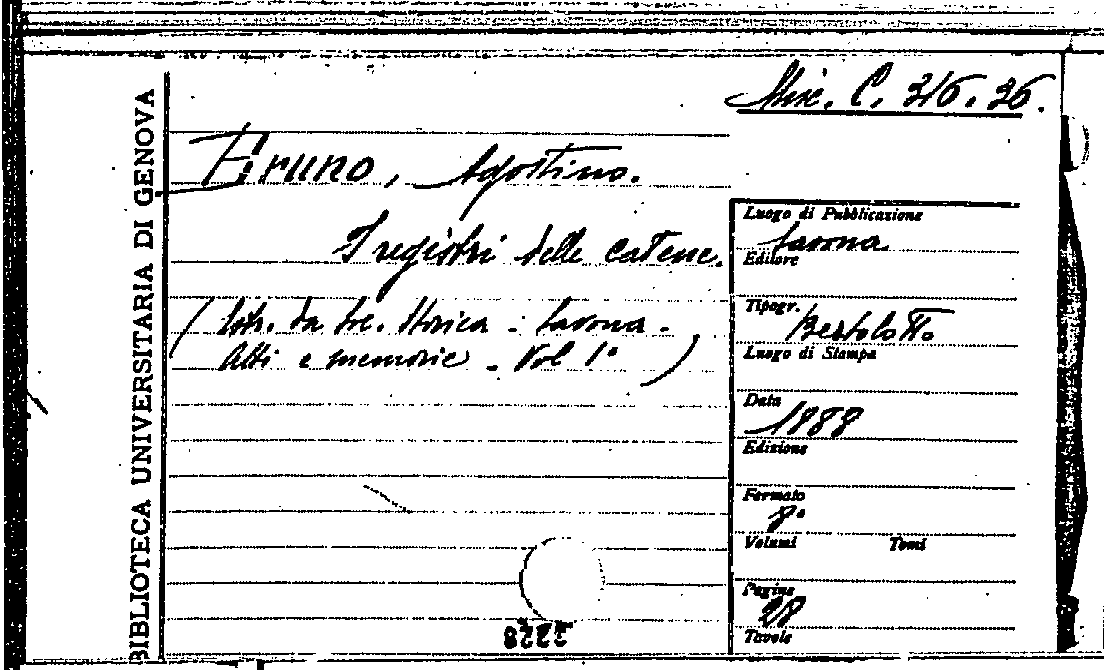 BIBLIOTECA UNIVERSITARIA DI GENOVA
Misc. C. 316. 36.
Bruno, Agostino.
I registri delle catene.
(Estr. da Soc. Storica - Savona -
Atti e memorie - Vol 1°)
Luogo di Pubblicazione
Savona
Editore
Tipogr.
Bertolotto
Luogo di Stampa
Data
1888
Edizione
Formato
8°
Volumi Tomi
Pagine
28
Tavole